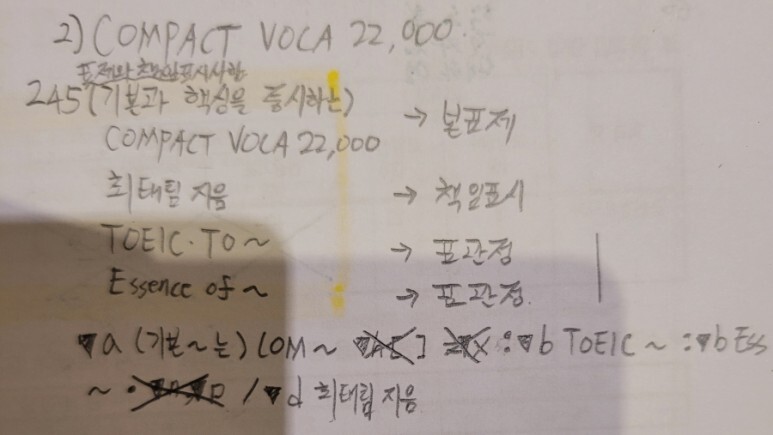 2) COMPACT VOCA 22,000
표제와 책임표시사항
245 (기본과 핵심을 중시하는) → 본표제
COMPACT VOCA 22,000
최태림 지음 → 책임표시
TOEIC·TO~ → 표관정
Essence of ~ → 표관정.
▼a (기본~는) COM~ : ▼b TOEIC ~ : ▼b Ess
~ / ▼d 최태림 지음